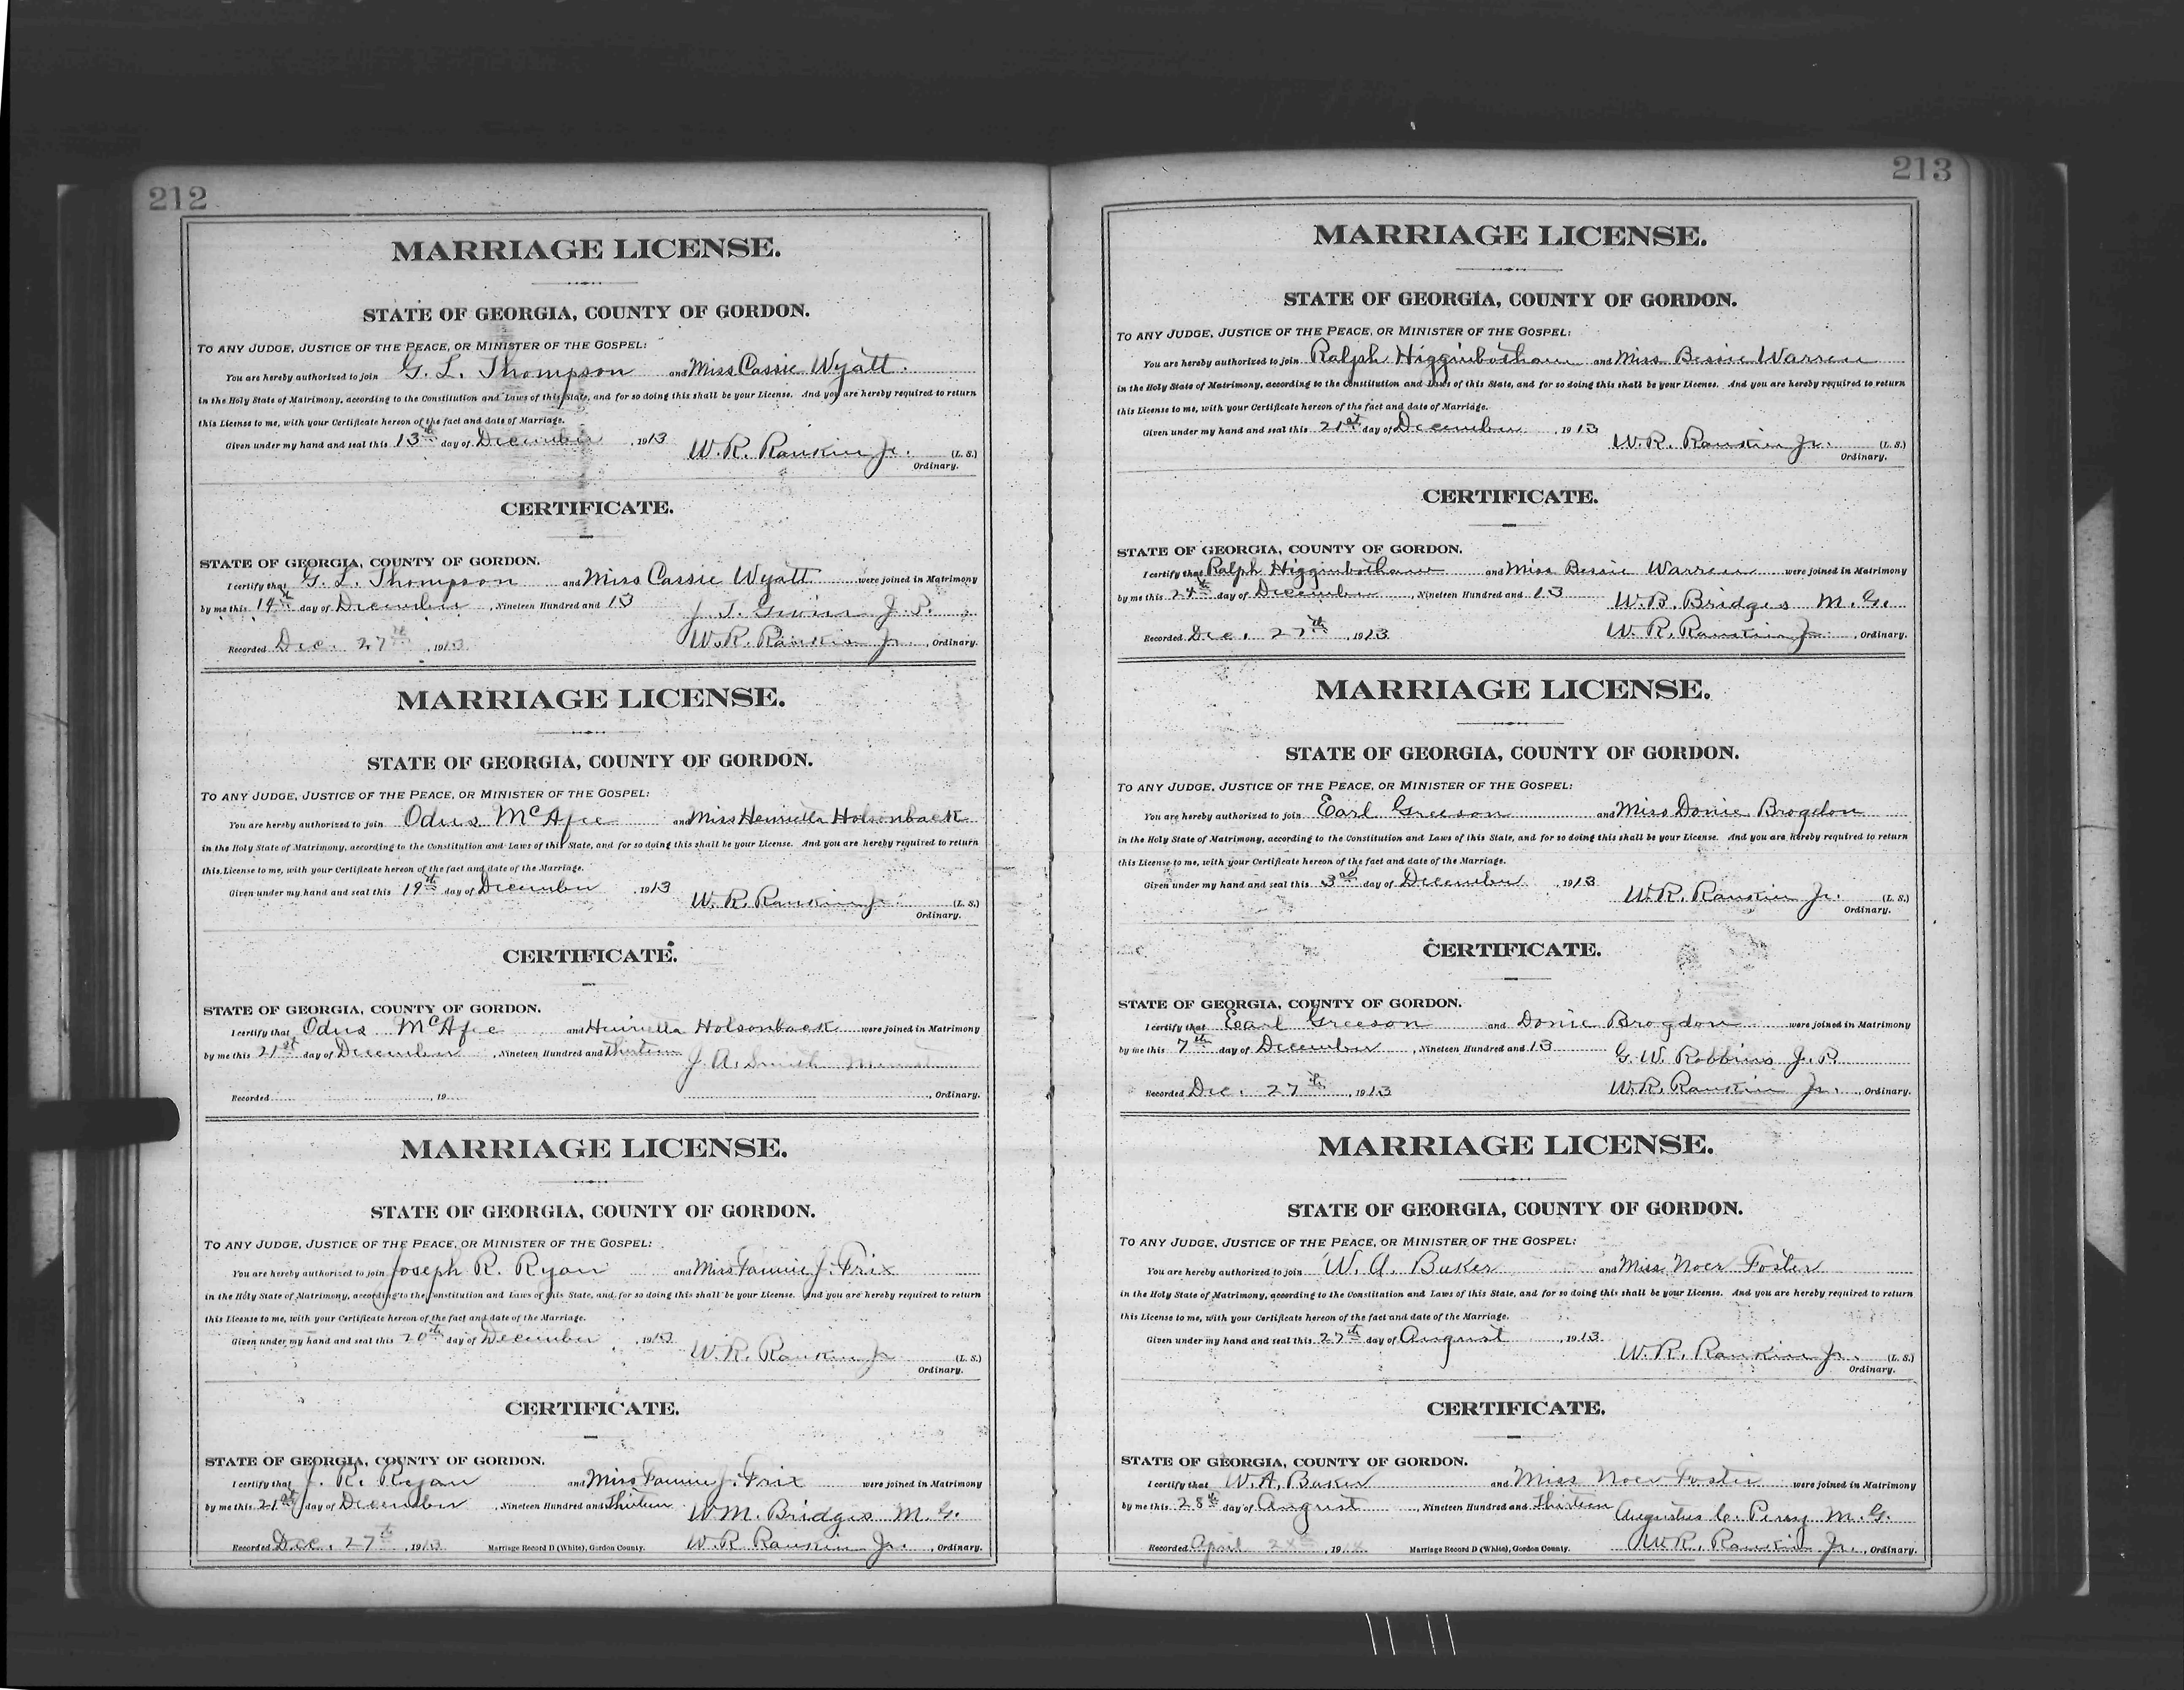 212
MARRIAGE LICENSE.
STATE OF GEORGIA, COUNTY OF GORDON.
TO ANY JUDGE, JUSTICE OF THE PEACE, OR MINISTER OF THE GOSPEL:
You are hereby authorized to join G. L. Thompson and Miss Cassie Wyatt.
in the Holy State of Matrimony, according to the Constitution and Laws of this State, and for so doing this shall be your License. And you are hereby required to return
this License to me, with your Certificate hereon of the fact and date of Marriage.
Given under my hand and seal this 13th day of December, 1913
W. R. Rankin Jr. (L. S.)
Ordinary.
CERTIFICATE.
STATE OF GEORGIA, COUNTY OF GORDON.
I certify that G. L. Thompson and Miss Cassie Wyatt were joined in Matrimony
by me this 14th day of December, Nineteen Hundred and 13
J. T. J. P.
Recorded Dec. 27th, 1913 W. R. Rankin Jr., Ordinary.
MARRIAGE LICENSE.
STATE OF GEORGIA, COUNTY OF GORDON.
TO ANY JUDGE, JUSTICE OF THE PEACE, OR MINISTER OF THE GOSPEL:
You are hereby authorized to join Odus McAfee and Miss Henrietta Holsonback
in the Holy State of Matrimony, according to the Constitution and Laws of this State, and for so doing this shall be your License. And you are hereby required to return
this License to me, with your Certificate hereon of the fact and date of the Marriage.
Given under my hand and seal this 19th day of December, 1913
W. R. Rankin Jr. (L. S.)
Ordinary.
CERTIFICATE.
STATE OF GEORGIA, COUNTY OF GORDON.
I certify that Odus McAfee and Henrietta Holsonback were joined in Matrimony
by me this 21st day of December, Nineteen Hundred and Thirteen
J. A. Smith
Recorded , 19 , Ordinary.
MARRIAGE LICENSE.
STATE OF GEORGIA, COUNTY OF GORDON.
TO ANY JUDGE, JUSTICE OF THE PEACE, OR MINISTER OF THE GOSPEL:
You are hereby authorized to join Joseph R. Ryan and Miss Fannie J. Frix
in the Holy State of Matrimony, according to the Constitution and Laws of this State, and for so doing this shall be your License. And you are hereby required to return
this License to me, with your Certificate hereon of the fact and date of the Marriage.
Given under my hand and seal this 20th day of December, 1913
W. R. Rankin Jr (L. S.)
Ordinary.
CERTIFICATE.
STATE OF GEORGIA, COUNTY OF GORDON.
I certify that J. R. Ryan and Miss Fannie J. Frix were joined in Matrimony
by me this 21st day of December, Nineteen Hundred and Thirteen
W. M. Bridges M. G.
Recorded Dec. 27th, 1913 Marriage Record D (White), Gordon County. W. R Rankin Jr., Ordinary.
213
MARRIAGE LICENSE.
STATE OF GEORGIA, COUNTY OF GORDON.
TO ANY JUDGE, JUSTICE OF THE PEACE, OR MINISTER OF THE GOSPEL:
You are hereby authorized to join Ralph Higginbotham and Miss Bessie Warren
in the Holy State of Matrimony, according to the Constitution and Laws of this State, and for so doing this shall be your License. And you are hereby required to return
this License to me, with your Certificate hereon of the fact and date of Marriage.
Given under my hand and seal this 21st day of December, 1913
W. R. Rankin Jr. (L. S.)
Ordinary.
CERTIFICATE.
STATE OF GEORGIA, COUNTY OF GORDON.
I certify that Ralph Higginbotham and Miss Bessie Warren were joined in Matrimony
by me this 24th day of December, Nineteen Hundred and 13
W. B. Bridges M. G.
Recorded Dec. 27th, 1913 W. R. Rankin Jr., Ordinary.
MARRIAGE LICENSE.
STATE OF GEORGIA, COUNTY OF GORDON.
TO ANY JUDGE, JUSTICE OF THE PEACE, OR MINISTER OF THE GOSPEL:
You are hereby authorized to join Earl Greeson and Miss Donie Brogdon
in the Holy State of Matrimony, according to the Constitution and Laws of this State, and for so doing this shall be your License. And you are hereby required to return
this License to me, with your Certificate hereon of the fact and date of the Marriage.
Given under my hand and seal this 3rd day of December, 1913
W. R. Rankin Jr. (L. S.)
Ordinary.
CERTIFICATE.
STATE OF GEORGIA, COUNTY OF GORDON.
I certify that Earl Greeson and Donie Brogdon were joined in Matrimony
by me this 7th day of December, Nineteen Hundred and 13
G. W. Robbins J. P.
Recorded Dec. 27th, 1913 W. R. Rankin Jr., Ordinary.
MARRIAGE LICENSE.
STATE OF GEORGIA, COUNTY OF GORDON.
TO ANY JUDGE, JUSTICE OF THE PEACE, OR MINISTER OF THE GOSPEL:
You are hereby authorized to join W. A. Baker and Miss Foster
in the Holy State of Matrimony, according to the Constitution and Laws of this State, and for so doing this shall be your License. And you are hereby required to return
this License to me, with your Certificate hereon of the fact and date of the Marriage.
Given under my hand and seal this 27th day of August, 1913
W. R. Rankin Jr. (L. S.)
Ordinary.
CERTIFICATE.
STATE OF GEORGIA, COUNTY OF GORDON.
I certify that W. A. Baker and Miss Foster were joined in Matrimony
by me this 28th day of August, Nineteen Hundred and Thirteen
Augustus C. Perry M. G.
Recorded April 19 Marriage Record D (White), Gordon County. W. R. Rankin Jr., Ordinary.